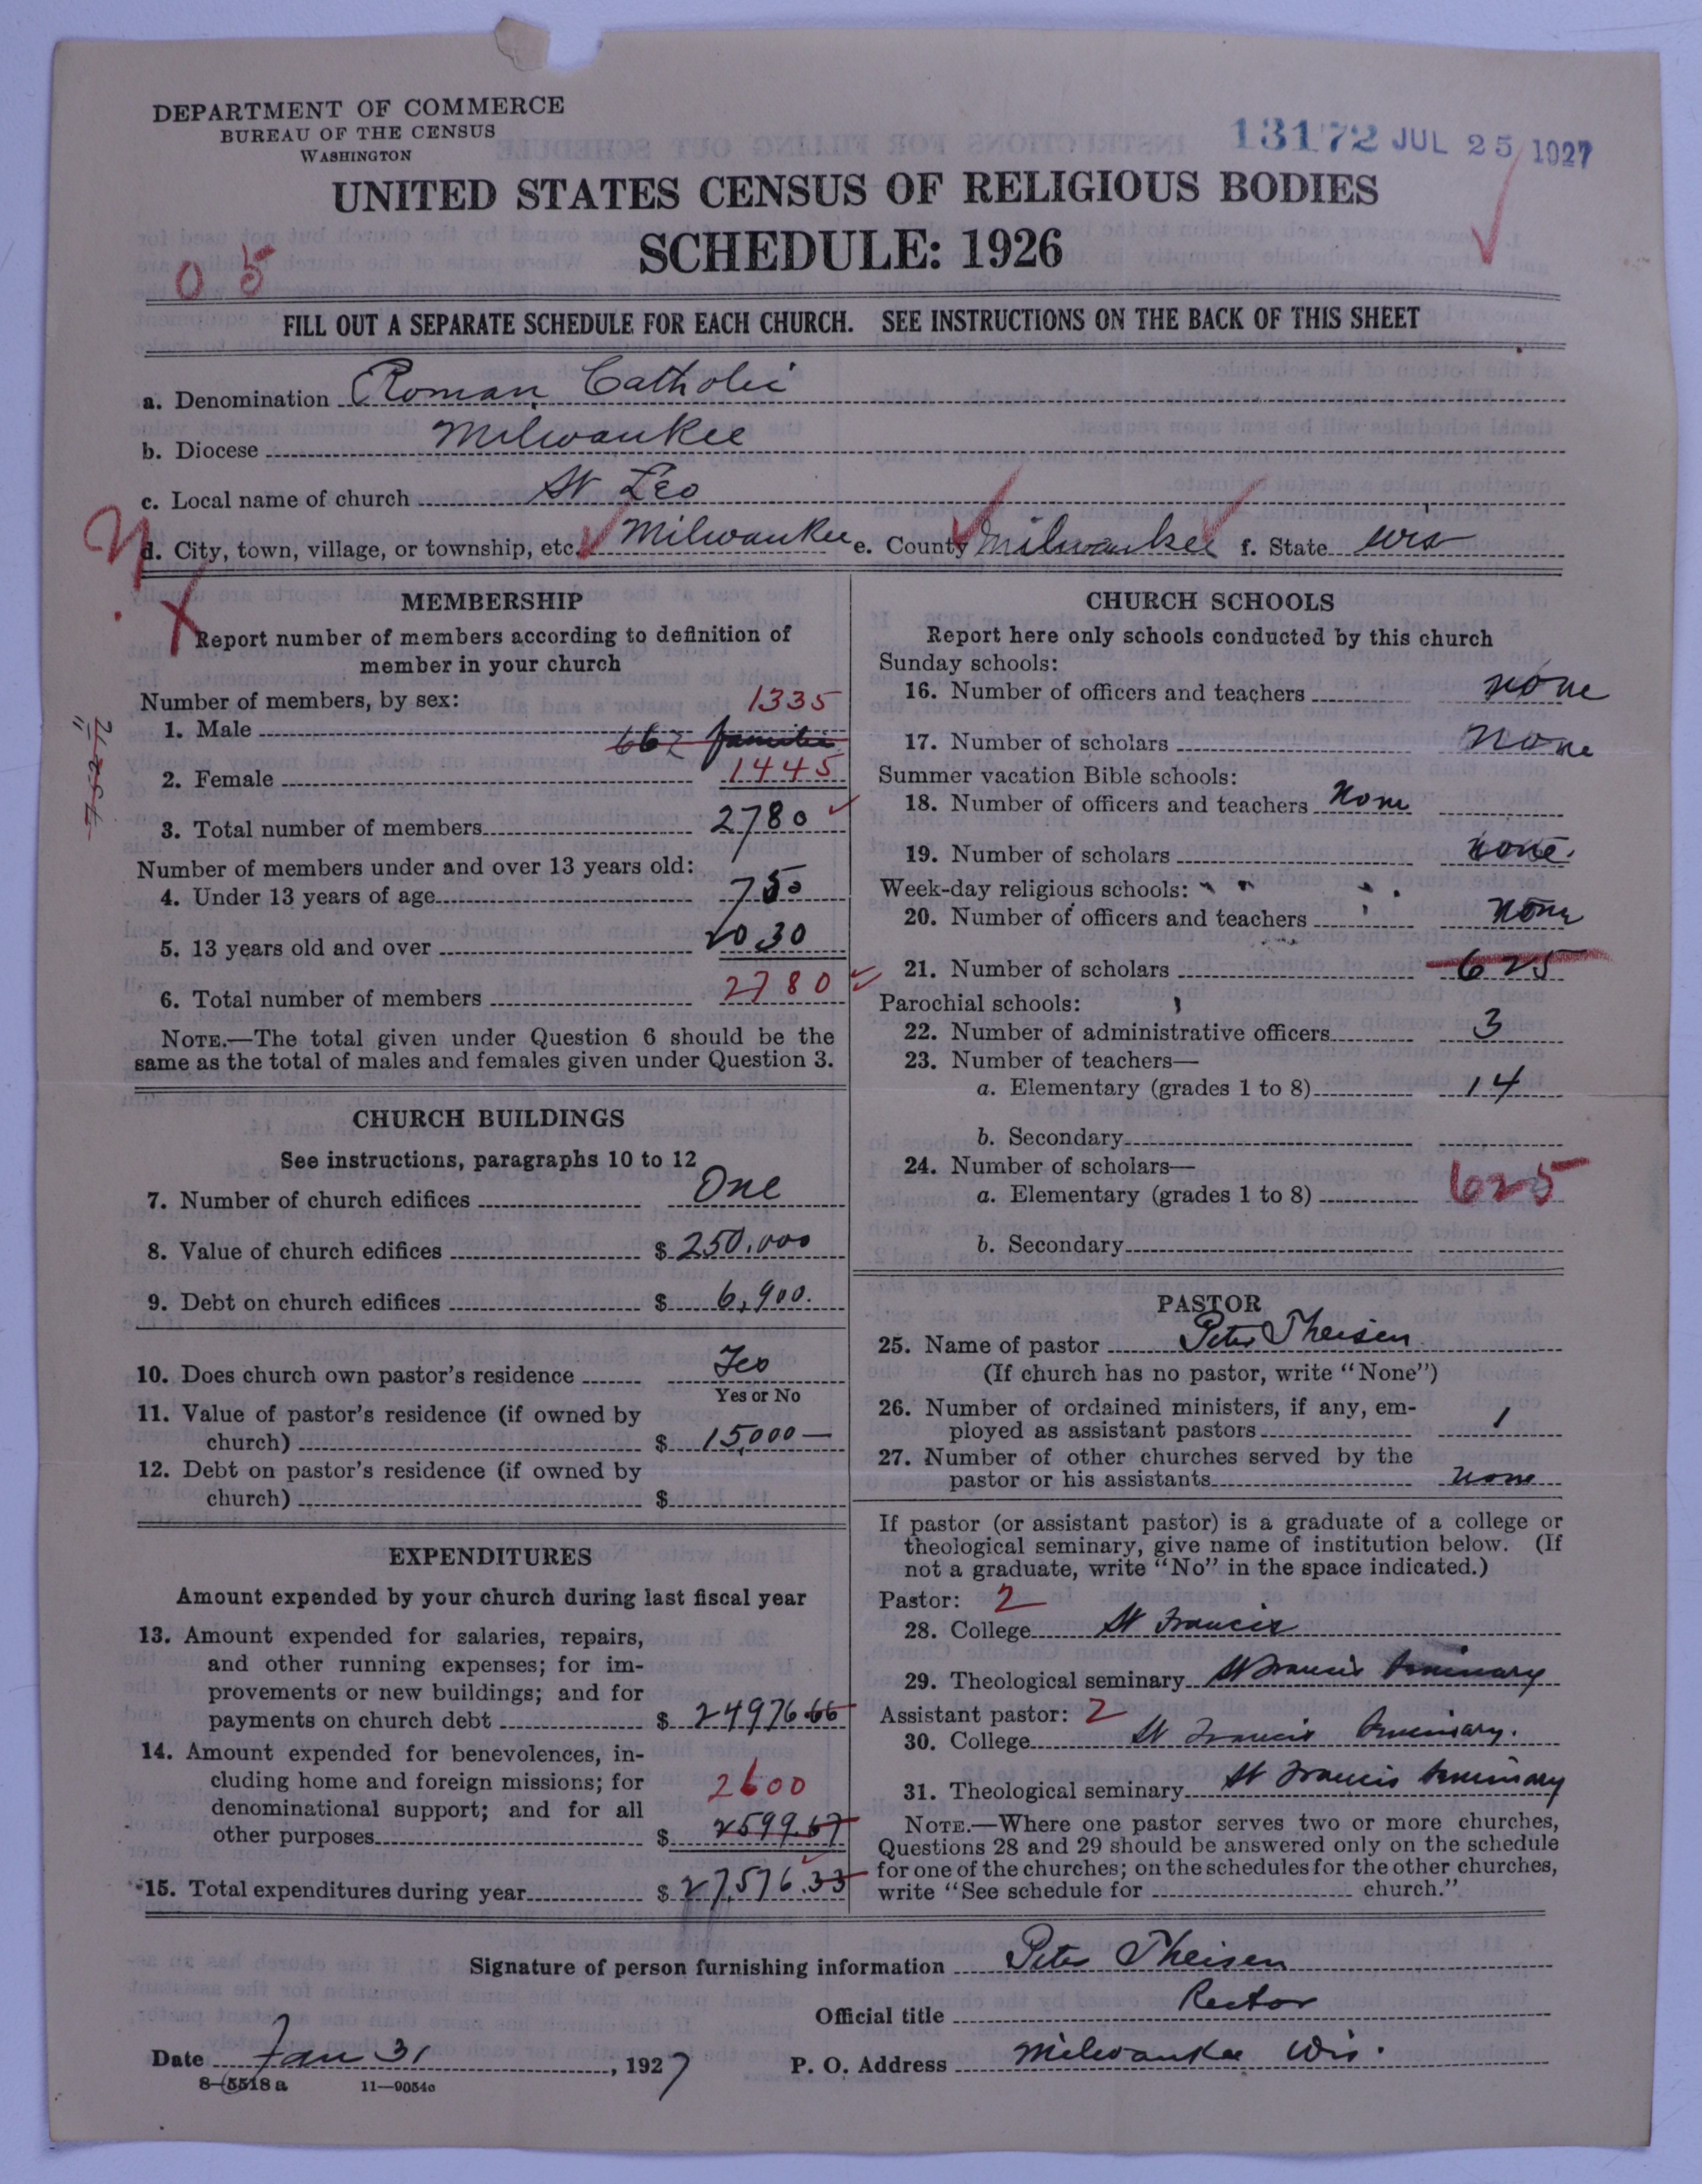 DEPARTMENT OF COMMERCE
BUREAU OF THE CENSUS
WASHINGTON
13172 JUL 25 1927
UNITED STATES CENSUS OF RELIGIOUS BODIES
SCHEDULE: 1926
0 5
FILL OUT A SEPARATE SCHEDULE FOR EACH CHURCH. SEE INSTRUCTIONS ON THE BACK OF THIS SHEET
a. Denomination Roman Catholic
b. Diocese Milwaukee
c. Local name of church St Leo
d. City, town, village, or township, etc. Milwaukee e. County Milwaukee f. State Wis
MEMBERSHIP
Report number of members according to definition of
member in your church
Number of members, by sex:
1335
1. Male
667 families
2. Female 1445
3. Total number of members 2780
Number of members under and over 13 years old:
4. Under 13 years of age 750
5. 13 years old and over 2030
6. Total number of members 2780
NOTE.—The total given under Question 6 should be the
same as the total of males and females given under Question 3.
CHURCH BUILDINGS
See instructions, paragraphs 10 to 12
7. Number of church edifices One
8. Value of church edifices $ 250,000
9. Debt on church edifices $ 6,900.
10. Does church own pastor's residence Yes
Yes or No
11. Value of pastor's residence (if owned by
church) $ 15,000—
12. Debt on pastor's residence (if owned by
church) $
EXPENDITURES
Amount expended by your church during last fiscal year
13. Amount expended for salaries, repairs,
and other running expenses; for im-
provements or new buildings; and for
payments on church debt $ 24976.66
14. Amount expended for benevolences, in-
cluding home and foreign missions; for 2600
denominational support; and for all
other purposes $ 2599.67
15. Total expenditures during year $ 27,576.33
CHURCH SCHOOLS
Report here only schools conducted by this church
Sunday schools:
16. Number of officers and teachers none
17. Number of scholars none
Summer vacation Bible schools:
18. Number of officers and teachers none
19. Number of scholars none.
Week-day religious schools:
20. Number of officers and teachers none
21. Number of scholars 625
Parochial schools:
22. Number of administrative officers 3
23. Number of teachers—
a. Elementary (grades 1 to 8) 14
b. Secondary
24. Number of scholars—
a. Elementary (grades 1 to 8) 625
b. Secondary
PASTOR
25. Name of pastor Peter Theisen
(If church has no pastor, write "None")
26. Number of ordained ministers, if any, em-
ployed as assistant pastors 1
27. Number of other churches served by the
pastor or his assistants none
If pastor (or assistant pastor) is a graduate of a college or
theological seminary, give name of institution below. (If
not a graduate, write "No" in the space indicated.)
Pastor: 2
28. College St Francis
29. Theological seminary St Francis Seminary
Assistant pastor: 2
30. College St Francis Seminary.
31. Theological seminary St Francis Seminary
NOTE.—Where one pastor serves two or more churches,
Questions 28 and 29 should be answered only on the schedule
for one of the churches; on the schedules for the other churches,
write "See schedule for church."
Signature of person furnishing information Peter Theisen
Official title Rector
Date Jan 31, 1927 P. O. Address Milwaukee Wis.
8-5518 a 11-9054a